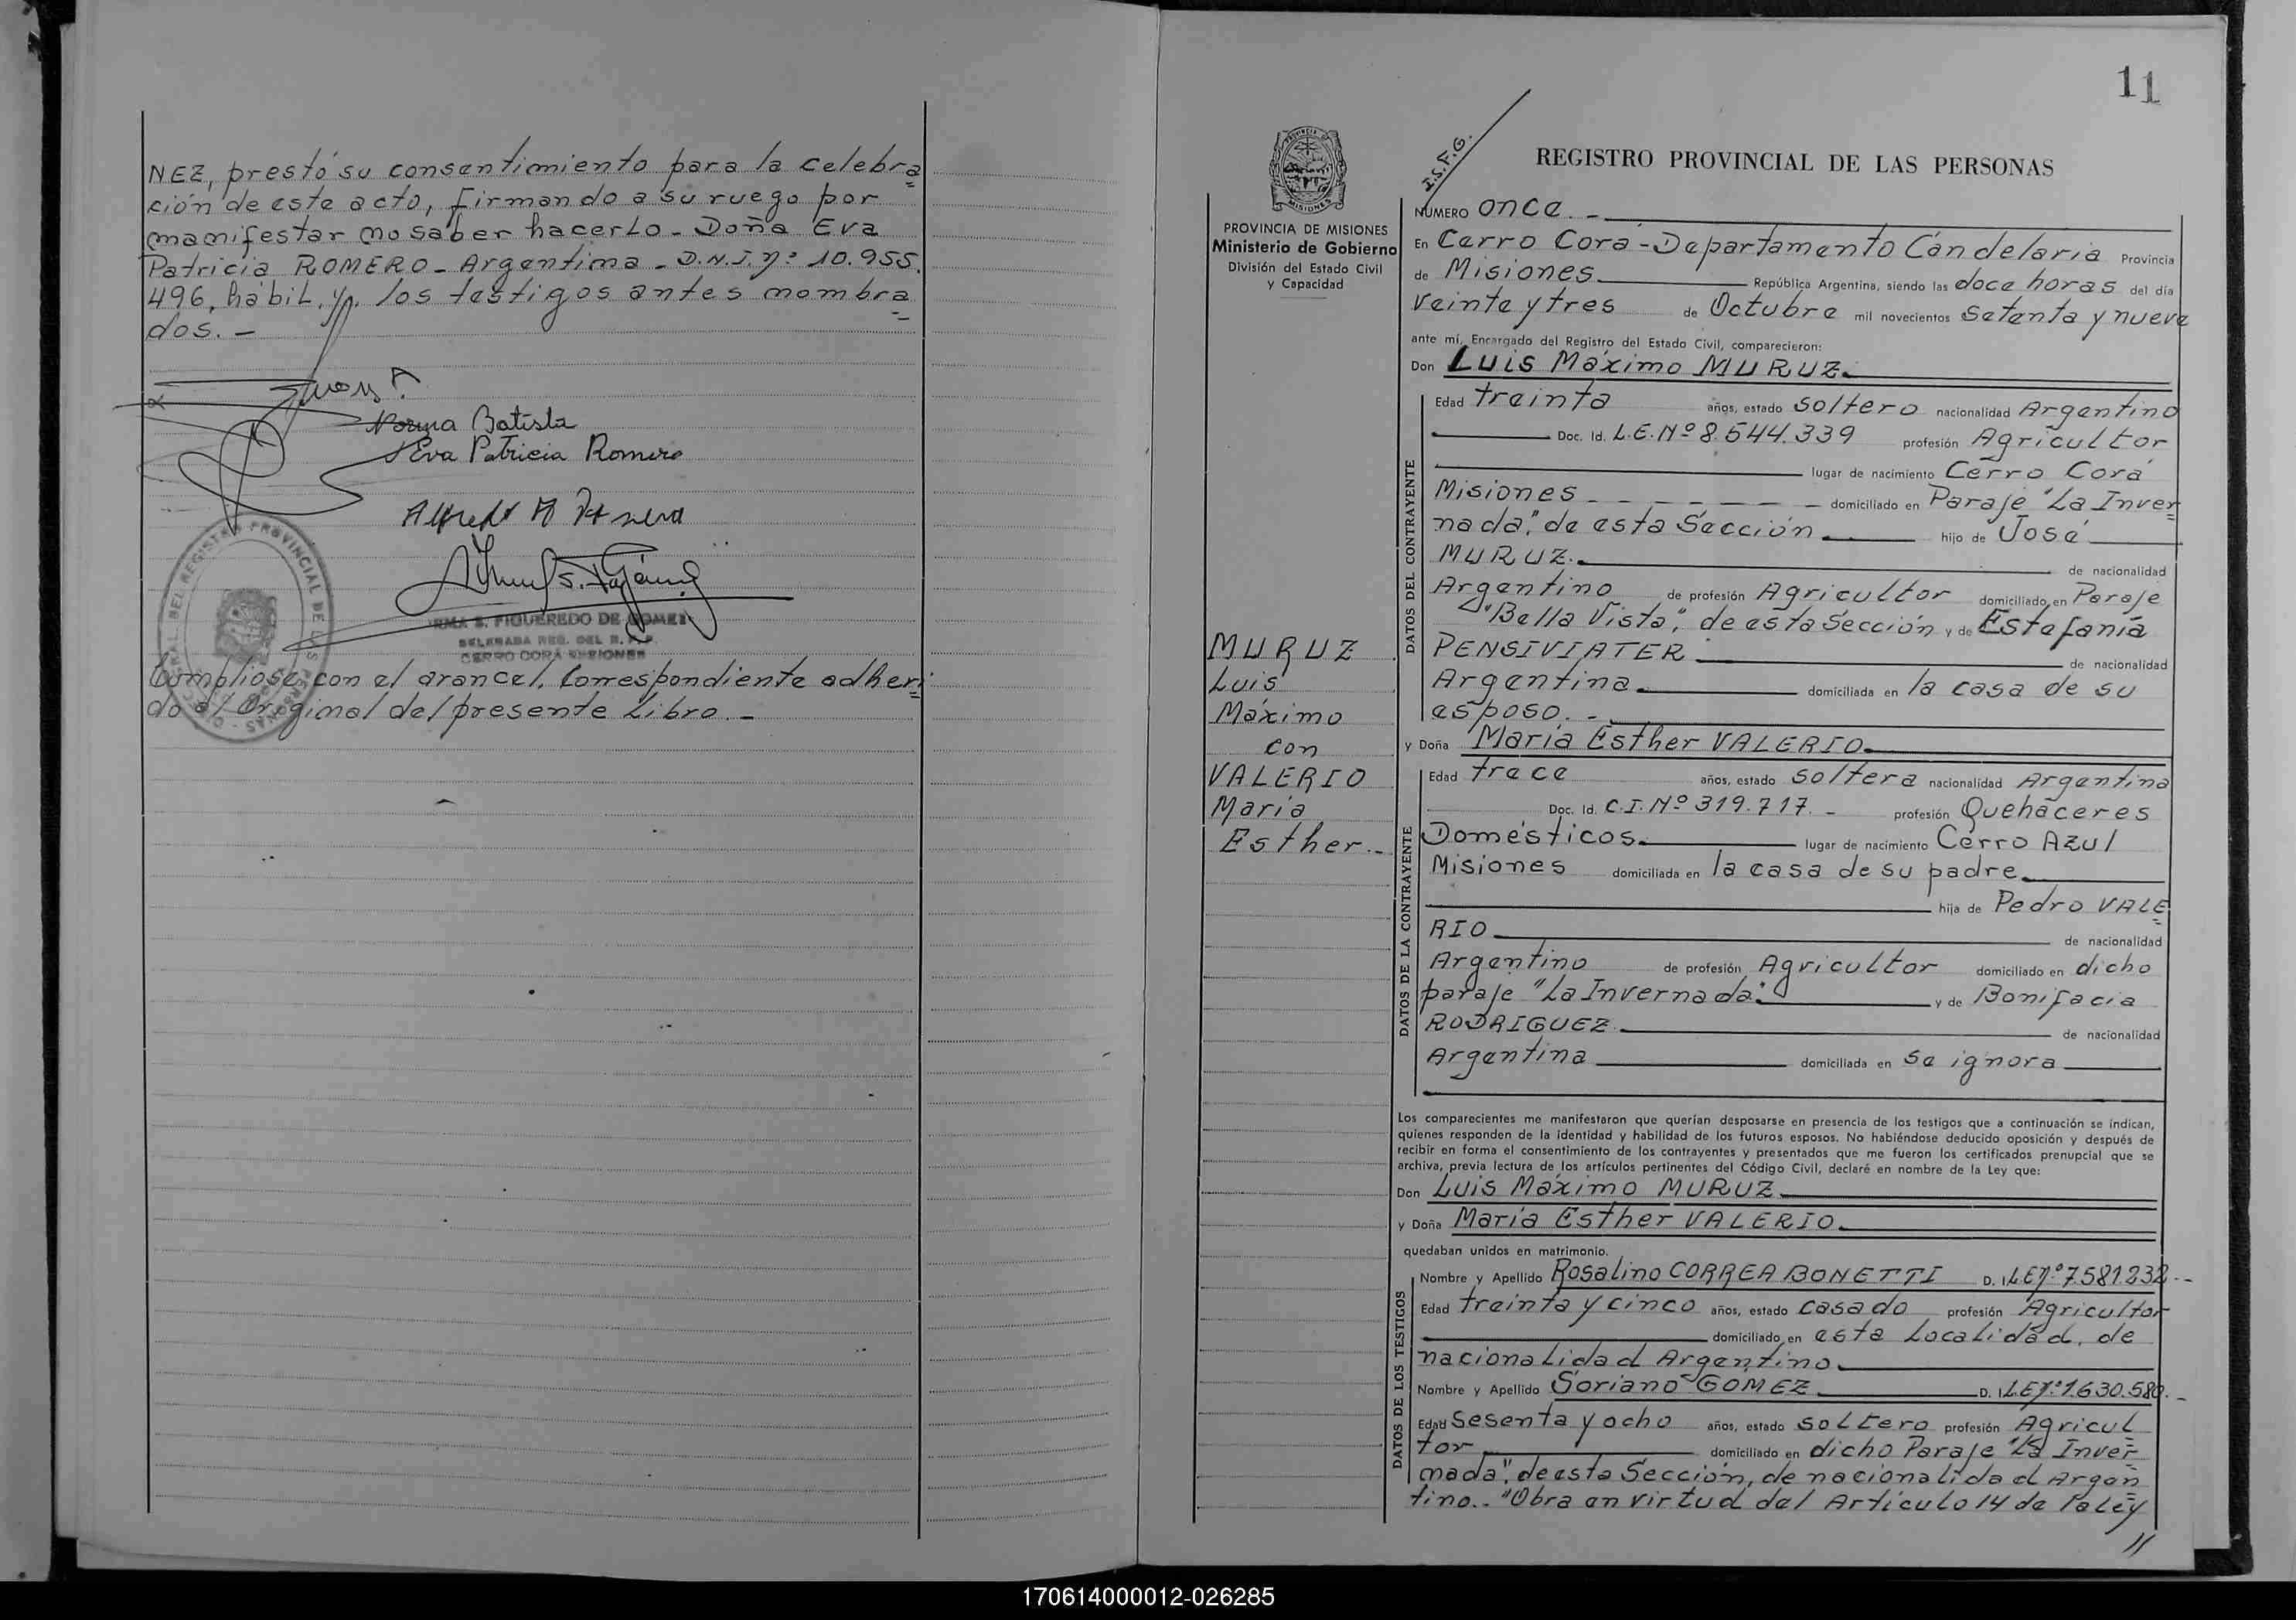 NEZ, prestó su consentimiento para la celebra
ción de este acto, firmando a su ruego por
manifestar no saber hacerlo - Doña Eva
Patricia ROMERO - Argentina - D.N.I. nº 10.955.
496, hábil. y los testigos antes nombra
dos. -
Norma Batista
Eva Patricia Romero
IRMA S. FIGUEREDO DE GOMEZ
DELEGADA REG. DEL R. P. P.
CERRO CORÁ MISIONES
REGISTRO PROVINCIAL DE LAS PERSONAS
Cumpliose con el arancel. Correspondiente adheri
do al Original del presente Libro. -
11
I.S.F.G.
PROVINCIA DE MISIONES
Ministerio de Gobierno
División del Estado Civil
y Capacidad
MURUZ
Luis
Máximo
con
VALERIO
María
Esther.-
REGISTRO PROVINCIAL DE LAS PERSONAS
NÚMERO once. -
En Cerro Corá - Departamento Candelaria Provincia
de Misiones República Argentina, siendo las doce horas del día
veinte y tres de Octubre mil novecientos setenta y nueve
ante mí, Encargado del Registro del Estado Civil, comparecieron:
Don Luis Máximo MURUZ.
DATOS DEL CONTRAYENTE
Edad treinta años, estado soltero nacionalidad Argentino
Doc. Id. L.E. Nº 8.544.339 profesión Agricultor
lugar de nacimiento Cerro Corá
Misiones - - - - - domiciliado en Paraje "La Inver
nada", de esta Sección hijo de José
MURUZ. de nacionalidad
Argentino de profesión Agricultor domiciliado en Paraje
"Bella Vista", de esta Sección y de Estefanía
PENSIVIATER de nacionalidad
Argentina. domiciliada en la casa de su
esposo. -
y Doña María Esther VALERIO.
DATOS DE LA CONTRAYENTE
Edad trece años, estado soltera nacionalidad Argentina
Doc. Id. C.I. Nº 319.717. - profesión Quehaceres
Domésticos. lugar de nacimiento Cerro Azul
Misiones domiciliada en la casa de su padre.
hija de Pedro VALE
RIO de nacionalidad
Argentino de profesión Agricultor domiciliado en dicho
paraje "La Invernada". y de Bonifacia
RODRIGUEZ. de nacionalidad
Argentina domiciliada en se ignora
Los comparecientes me manifestaron que querían desposarse en presencia de los testigos que a continuación se indican,
quienes responden de la identidad y habilidad de los futuros esposos. No habiéndose deducido oposición y después de
recibir en forma el consentimiento de los contrayentes y presentados que me fueron los certificados prenupcial que se
archiva, previa lectura de los artículos pertinentes del Código Civil, declaré en nombre de la Ley que:
Don Luis Máximo MURUZ.
y Doña María Esther VALERIO.
quedaban unidos en matrimonio.
DATOS DE LOS TESTIGOS
Nombre y Apellido Rosalino CORREA BONETTI D. I. LE nº 7.581.232.--
Edad treinta y cinco años, estado casado profesión Agricultor
domiciliado en esta Localidad. de
nacionalidad Argentino.
Nombre y Apellido Soriano GOMEZ D. I. LE nº 1.630.580. -
Edad sesenta y ocho años, estado soltero profesión Agricul
tor domiciliado en dicho Paraje "La Inver
nada", de esta Sección, de nacionalidad Argen
tino.- "Obra en virtud del Artículo 14 de la Ley
//
170614000012-026285